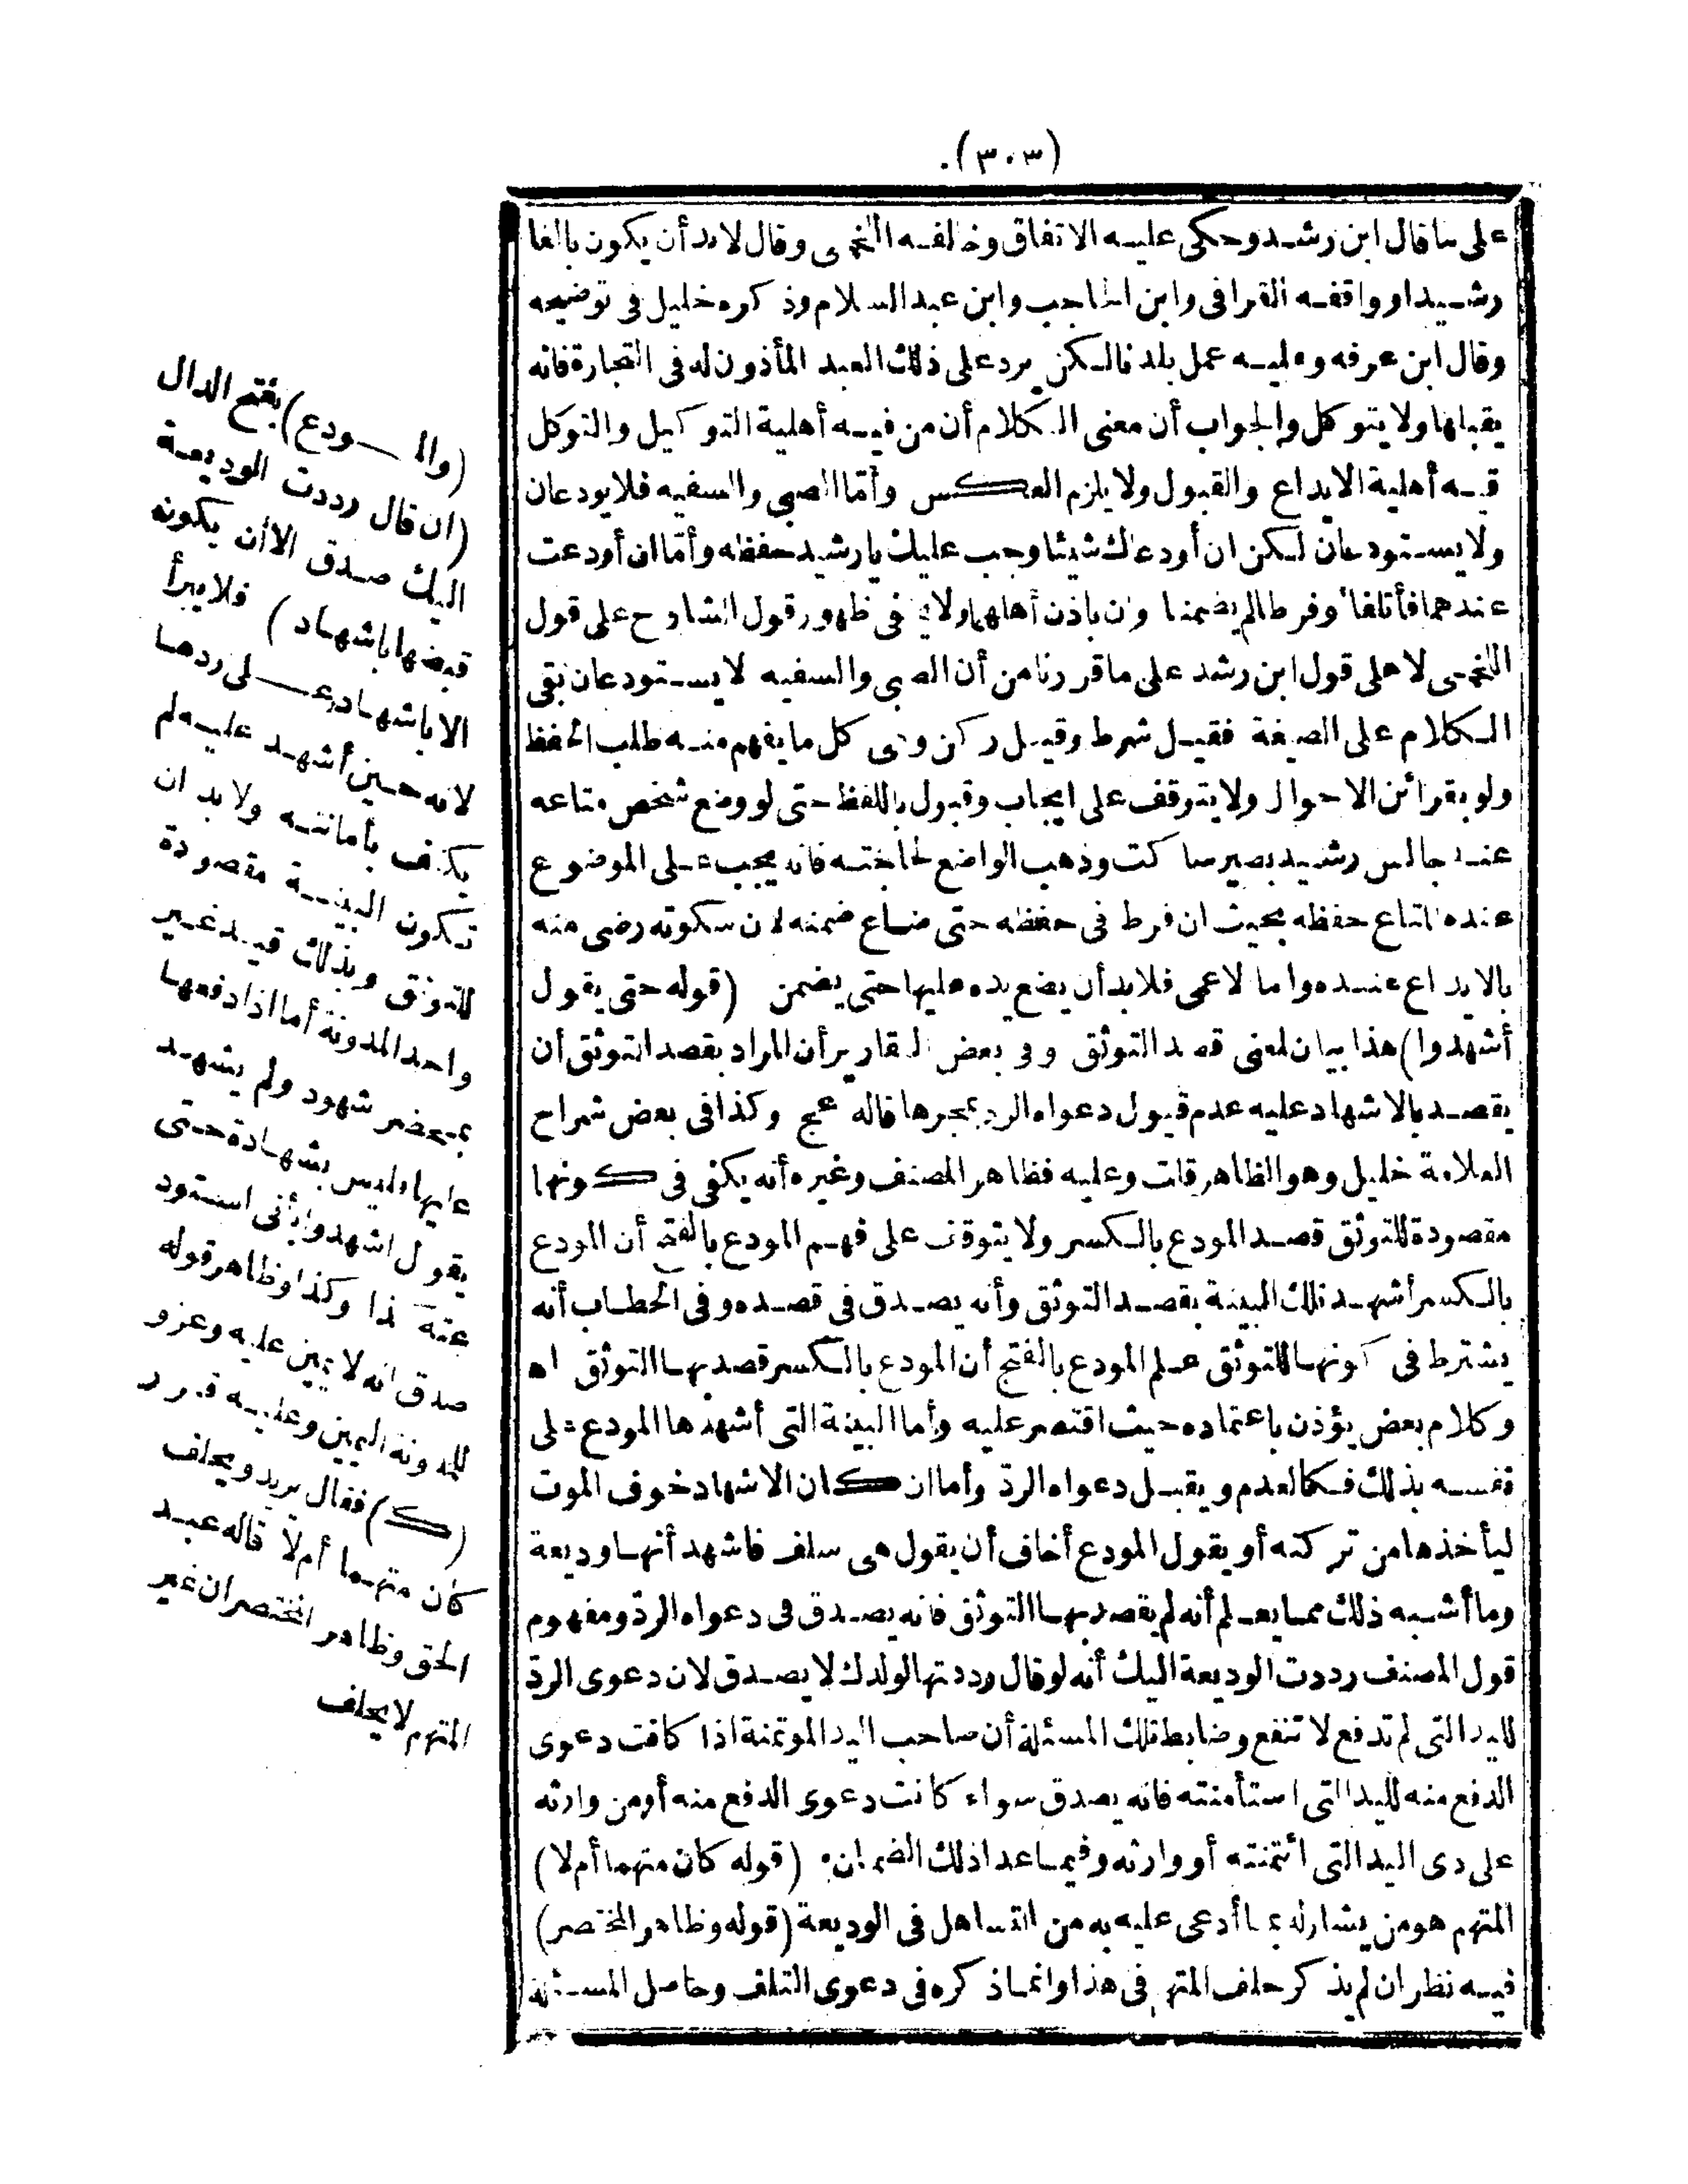 (٣٠٣)
على ما قال ابن رشد وحكى عليه الاتفاق وخالفه اللخمى وقال لا بد أن يكون بالغا
رشيدا ووافقه القرافى وابن الحاجب وابن عبد السلام وذكره خليل فى توضيحه
وقال ابن عرفه وعليه عمل بلدنا لكن يرد على ذلك العبد المأذون له فى التجارة فانه
يقبلها ولا يتوكل والجواب أن معنى الكلام أن من فيه أهلية التوكيل والتوكل
فيه أهلية الايداع والقبول ولا يلزم العكس وأمّا الصبى والسفيه فلا يودعان
ولا يستودعان لكن ان أودعاك شيئا وجب عليك يا رشيد حفظه وأمّا ان أودعت
عندهما فأتلفا أو فرطا لم يضمنا وان باذن أهلهما ولا فى ظهور قول الشارح على قول
اللخمى لا على قول ابن رشد على ما قررنا من أن الصبى والسفيه لا يستودعان بقى
الكلام على الصيغة فقيل شرط وقيل ركن وهى كل ما يفهم منه طلب الحفظ
ولو بقرائن الاحوال ولا يتوقف على ايجاب وقبول باللفظ حتى لو وضع شخص متاعه
عند جالس رشيد بصير ساكت وذهب الواضع لحاجته فانه يجب على الموضوع
عنده المتاع حفظه بحيث ان فرط فى حفظه حتى ضاع ضمنه لان سكوته رضى منه
بالايداع عنده واما لاعمى فلا بد أن يضع يده عليها حتى يضمن (قوله حتى يقول
أشهدوا) هذا بيان لمعنى قصد التوثق وفى بعض التقارير أن المراد بقصد التوثق أن
يقصد بالاشهاد عليه عدم قبول دعواه الرد بمجرها قاله عج وكذا فى بعض شراح
العلامة خليل وهو الظاهر قلت وعليه فظاهر المصنف وغيره أنه يكفى فى كونها
مقصودة للتوثق قصد المودع بالكسر ولا يتوقف على فهم المودع بالفتح أن المودع
بالكسر أشهد تلك البينة بقصد التوثق وأنه يصدق فى قصده وفى الحطاب أنه
يشترط فى كونها للتوثق علم المودع بالفتح أن المودع بالكسر قصد بها التوثق اه
وكلام بعض يؤذن باعتماده حيث اقتصر عليه وأما البينة التى أشهدها المودع على
نفسه بذلك فكالعدم ويقبل دعواه الردّ وأما ان كان الاشهاد خوف الموت
ليأخذها من تركته أو يقول المودع أخاف أن يقول هى سلف فاشهد أنها وديعة
وما أشبه ذلك مما يعلم أنه لم يقصد بها التوثق فانه يصدق فى دعواه الردّ ومفهوم
قول المصنف رددت الوديعة اليك أنه لو قال رددتها لولدك لا يصدق لان دعوى الردّ
لليد التى لم تدفع لا تنفع وضابط تلك المسئلة أن صاحب اليد المؤتمنة اذا كانت دعوى
الدفع منه لليد التى استأمنته فانه يصدق سواء كانت دعوى الدفع منه أو من وارثه
على ذى اليد التى ائتمنته أو وارثه وفيما عدا ذلك الضمان (قوله كان متهما أم لا)
المتهم هو من يشار له بما أدعى عليه به من التساهل فى الوديعة (قوله وظاهر المختصر)
فيه نظر ان لم يذكر حلف المتهم فى هذا وانما ذكره فى دعوى التلف وحاصل المسئلة
(والمودع) بفتح الدال
(ان قال رددت الوديعة
اليك صدق الا أن يكون
قبضها باشهاد) فلا يبرأ
الا باشهاد على ردها
لانه حين أشهد عليه لم
يكتف بأمانته ولا بد ان
تكون البينة مقصودة
للتوثق وبذلك قيد غير
واحد المدونة أما اذا دفعها
بمحضر شهود ولم يشهد
عليها وليس بشهادة حتى
يقول اشهدوا بأنى استود
عته كذا وكذا وظاهر قوله
صدق انه لا يمين عليه وعزو
للمدونة اليمين وعليه قرر
(ك) فقال يريد ويحلف
كان متهما أم لا قاله عبد
الحق وظاهر المختصر ان غير
المتهم لا يحلف